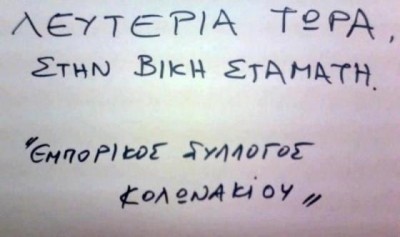 ΛΕΥΤΕΡΙΑ ΤΩΡΑ,
ΣΤΗΝ ΒΙΚΗ ΣΤΑΜΑΤΗ.
"ΕΜΠΟΡΙΚΟΣ ΣΥΛΛΟΓΟΣ
ΚΟΛΩΝΑΚΙΟΥ„